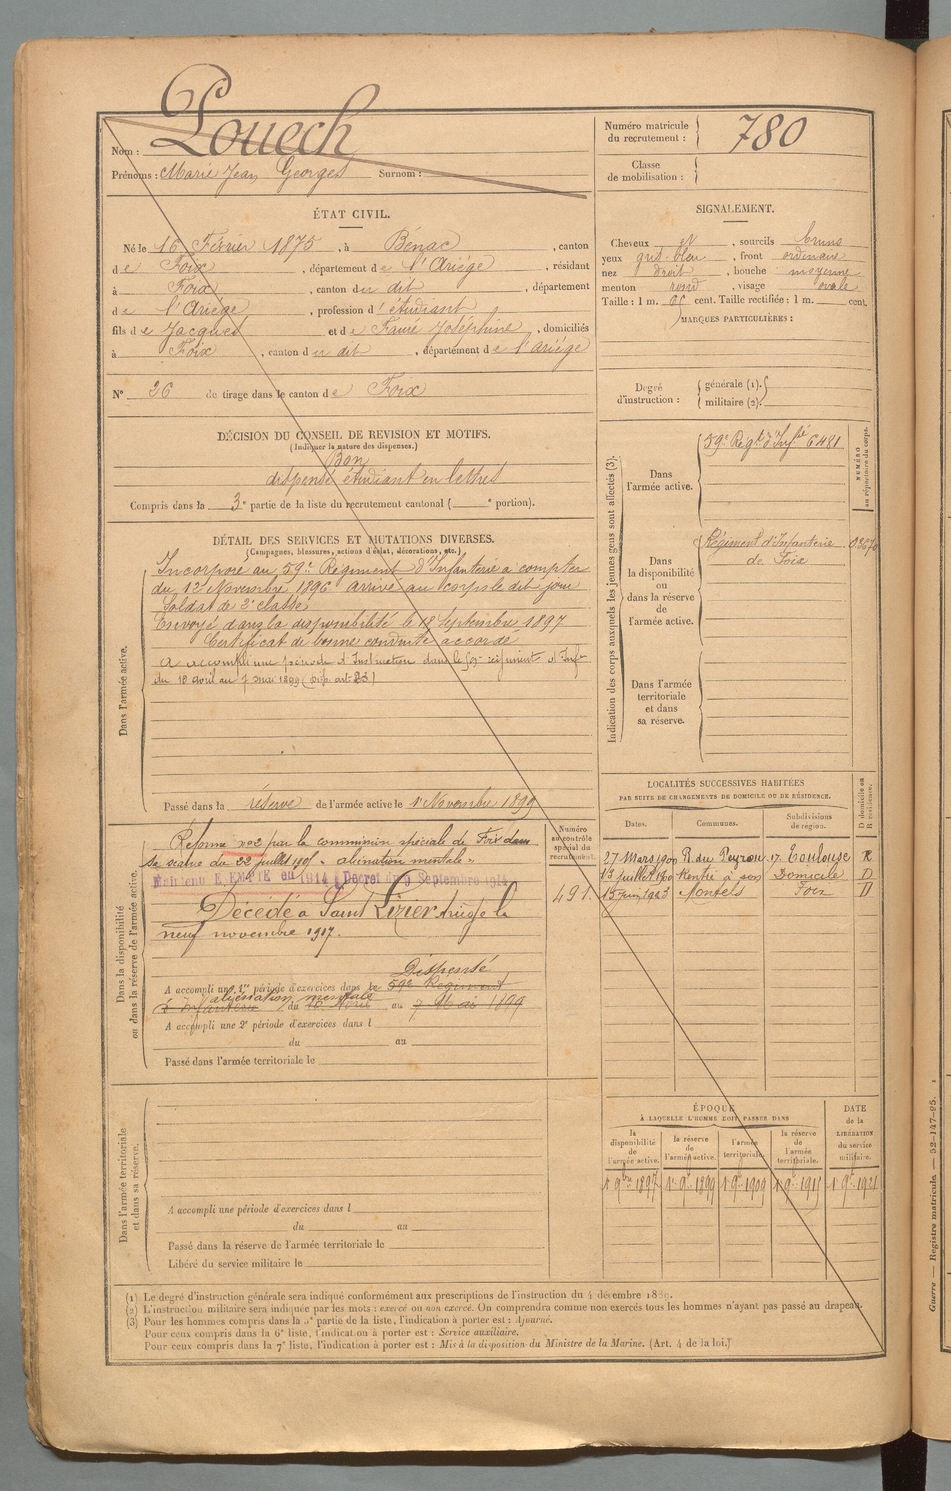 Nom : Pouech
Prénoms : Marie Jean Georges Surnom :
Numéro matricule du recrutement : 780
Classe de mobilisation :
ÉTAT CIVIL.
Né le 16 Février 1875, à Bénac, canton
de Foix, département de l'Ariège, résidant
à Foix, canton du dit, département
de l'Ariège, profession d'étudiant
fils de Jacques et de Faure Joséphine, domiciliés
à Foix, canton du dit, département de l'Ariège
N° 26 de tirage dans le canton de Foix
SIGNALEMENT.
Cheveux et, sourcils bruns
yeux gris-bleu, front ordinaire
nez droit, bouche moyenne
menton rond, visage ovale
Taille : 1 m. cent. Taille rectifiée : 1 m. cent.
MARQUES PARTICULIÈRES :
Degré d'instruction : générale (1). militaire (2).
DÉCISION DU CONSEIL DE REVISION ET MOTIFS.
(Indiquer la nature des dispenses.)
Bon
dispensé étudiant en lettres
Compris dans la 3e partie de la liste du recrutement cantonal ( e portion).
DÉTAIL DES SERVICES ET MUTATIONS DIVERSES.
(Campagnes, blessures, actions d'éclat, décorations, etc.)
Dans l'armée active.
Incorporé au 59e Régiment d'Infanterie à compter
du 12 Novembre 1896 arrivé au corps le dit jour
Soldat de 2e classe
Envoyé dans la disponibilité le 18 Septembre 1897
Certificat de bonne conduite accordé
A accompli une période d'Instruction dans le 59e régiment d'Infie
du 10 avril au 7 mai 1899 (disp. art. 23)
Passé dans la réserve de l'armée active le 1 Novembre 1899
Indication des corps auxquels les jeunes gens sont affectés (3).
NUMÉRO au répertoire du corps.
Dans l'armée active.
59e Régt d'Infie 6481
Dans la disponibilité ou dans la réserve de l'armée active.
Régiment d'Infanterie
de Foix
Dans l'armée territoriale et dans sa réserve.
LOCALITÉS SUCCESSIVES HABITÉES
PAR SUITE DE CHANGEMENTS DE DOMICILE OU DE RÉSIDENCE.
Dates. Communes. Subdivisions de région. D domicile ou R résidence.
27 Mars 1900 R. du Peyrou 17 Toulouse R
13 juillet 1900 Rentré à son Domicile D
15 juin 1903 Montels Foix D
Dans la disponibilité ou dans la réserve de l'armée active.
Numéro au contrôle spécial du recrutement.
Réformé no 2 par la commission spéciale de Foix dans
sa séance du 22 juillet 1905 « aliénation mentale »
Maintenu EXEMPTÉ en 1914 Décret du 9 Septembre 1914
491
Décédé à Saint Lizier Ariège le
neuf novembre 1917.
Dispensé
A accompli une 1re période d'exercices dans le 59e Régiment
aliénation mentale
d'Infanterie du 10 Avril au 7 Mai 1899
A accompli une 2e période d'exercices dans l
du au
Passé dans l'armée territoriale le
Dans l'armée territoriale et dans sa réserve.
A accompli une période d'exercices dans l
du au
Passé dans la réserve de l'armée territoriale le
Libéré du service militaire le
ÉPOQUE
À LAQUELLE L'HOMME DOIT PASSER DANS
DATE de la LIBÉRATION du service militaire.
la disponibilité de l'armée active. la réserve de l'armée active. l'armée territoriale. la réserve de l'armée territoriale.
1 9bre 1897 1 9e 1899 1 9e 1909 1 9e 1915 1 9e 1921
(1) Le degré d'instruction générale sera indiqué conformément aux prescriptions de l'instruction du 4 décembre 1889.
(2) L'instruction militaire sera indiquée par les mots : exercé ou non exercé. On comprendra comme non exercés tous les hommes n'ayant pas passé au drapeau.
(3) Pour les hommes compris dans la 5e partie de la liste, l'indication à porter est : Ajourné.
Pour ceux compris dans la 6e liste, l'indication à porter est : Service auxiliaire.
Pour ceux compris dans la 7e liste, l'indication à porter est : Mis à la disposition du Ministre de la Marine. (Art. 4 de la loi.)
Guerre — Registre matricule. — 52-147-95.